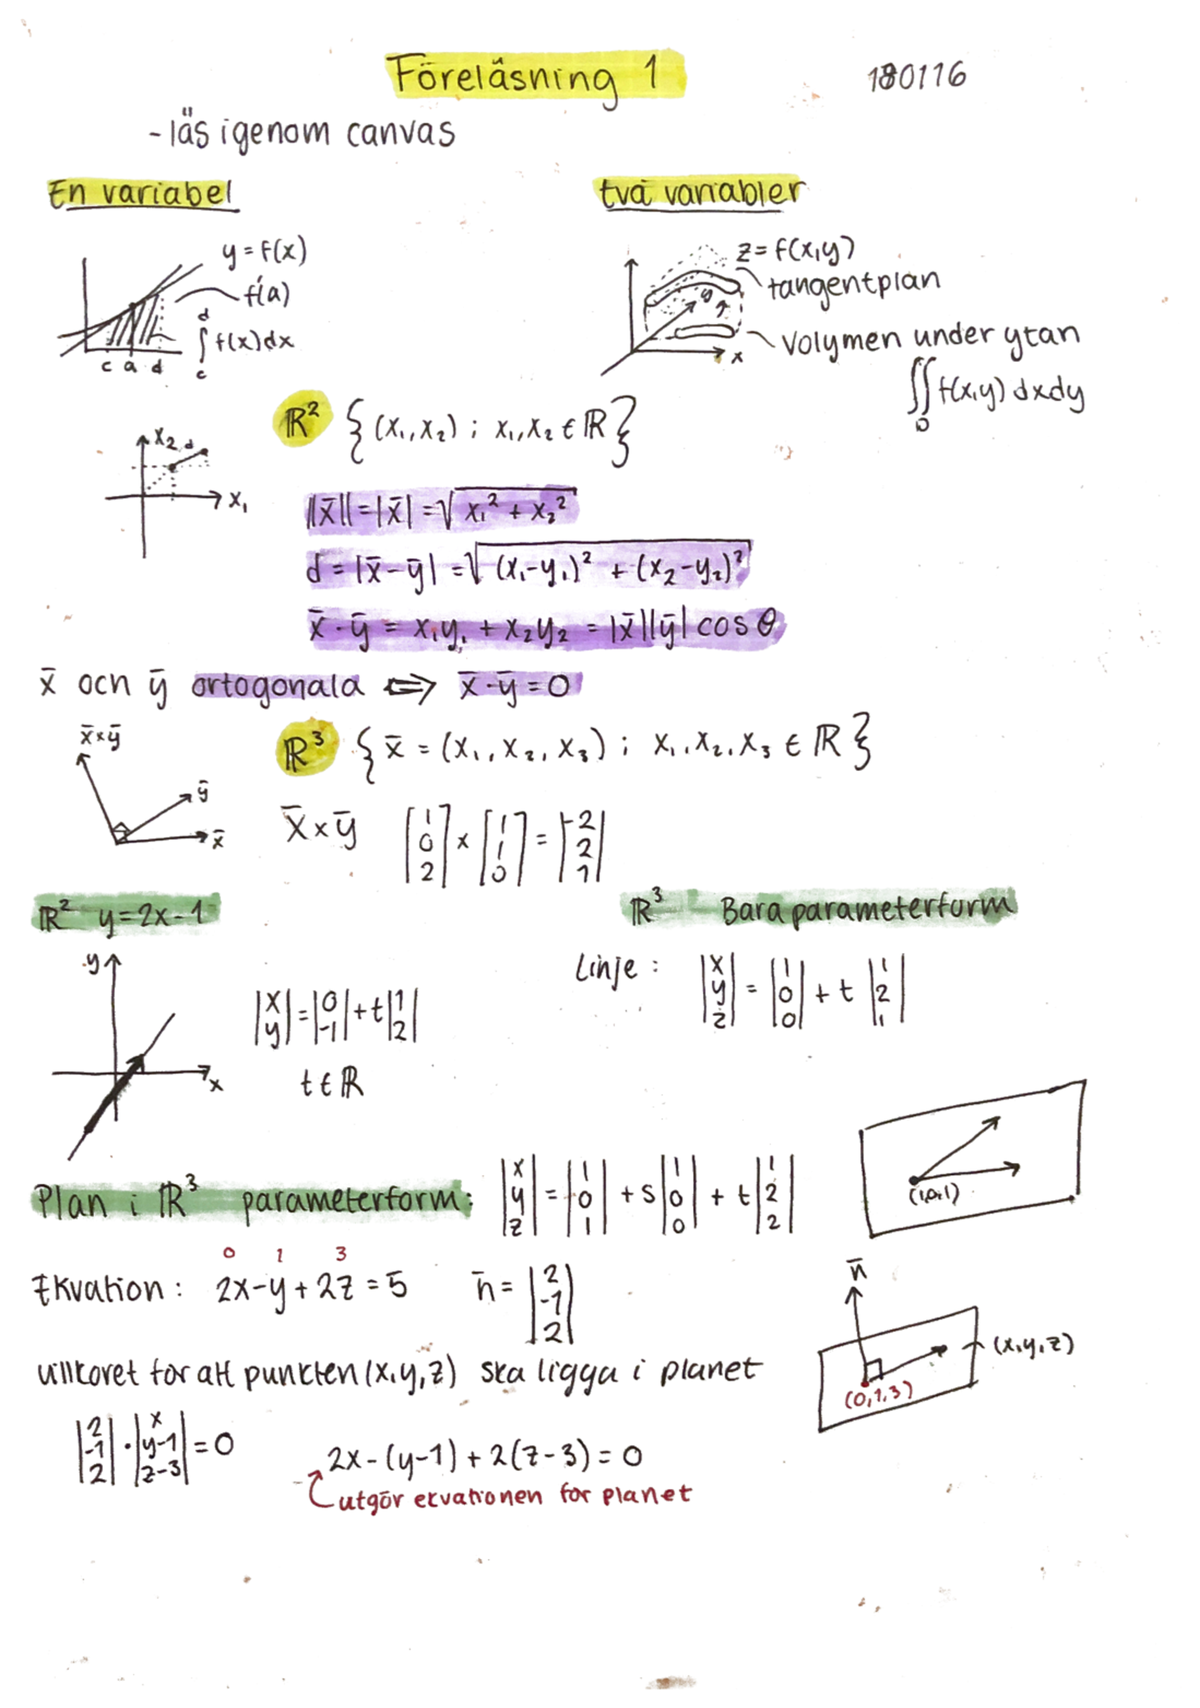 Föreläsning 1
180116
- läs igenom canvas
En variabel
två variabler
y = f(x)
f'(a)
∫ f(x)dx
d
c
c a d
z = f(x,y)
tangentplan
volymen under ytan
∬ f(x,y) dxdy
D
y
x
ℝ² {(x₁,x₂) ; x₁,x₂ ∈ ℝ}
x₂ d
x₁
||x̄|| = |x̄| = √(x₁² + x₂²)
d = |x̄-ȳ| = √((x₁-y₁)² + (x₂-y₂)²)
x̄·ȳ = x₁y₁ + x₂y₂ = |x̄||ȳ| cos θ
x̄ och ȳ ortogonala ⟺ x̄·ȳ = 0
x̄×ȳ
ȳ
x̄
ℝ³ {x̄ = (x₁, x₂, x₃) ; x₁, x₂, x₃ ∈ ℝ}
x̄×ȳ [1 0 2] × [1 1 0] = |-2 2 1|
ℝ² y=2x-1
ℝ³ Bara parameterform
y
x
|x y| = |0 -1| + t|1 2|
t ∈ ℝ
Linje : |x y z| = |1 0 0| + t |1 2 1|
Plan i ℝ³ parameterform: |x y z| = |1 0 1| + s|1 0 0| + t|1 2 2|
(1,0,1)
0 1 3
Ekvation : 2x-y+2z = 5 n̄ = |2 -1 2|
n̄
(x,y,z)
(0,1,3)
villkoret för att punkten (x,y,z) ska ligga i planet
|2 -1 2| · |x y-1 z-3| = 0
2x-(y-1)+2(z-3) = 0
utgör ekvationen för planet